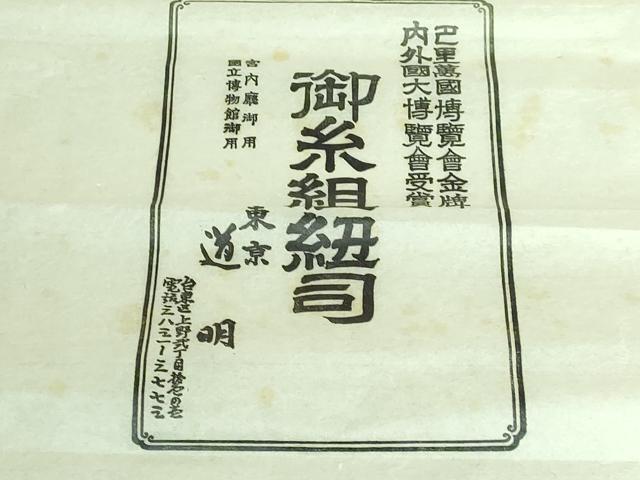 巴里萬國博覽會金牌
内外國大博覽會受賞
御糸組紐司
宮内廳御用
國立博物館御用
東京
道明
台東区上野弐丁目拾壱の壱
電話三八三一ー三七七三